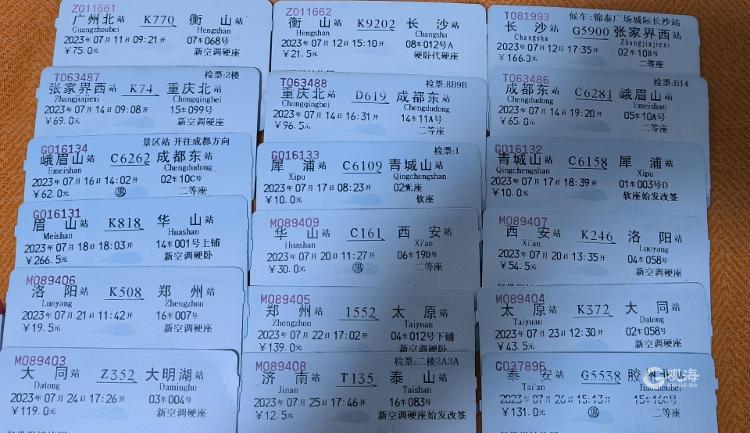 Z011661
广州北站 K770 衡山站
Guangzhoubei Hengshan
2023年07月11日09:21开 07车068号
￥75.0元 新空调硬座
Z011662
衡山站 K9202 长沙站
Hengshan Changsha
2023年07月12日15:10开 08车012号A
￥21.5元 硬卧代硬座
T081993 候车:锦泰广场城际长沙站
长沙站 G5900 张家界西站
Changsha Zhangjiajiexi
2023年07月12日17:35开 02车10B号
￥166.0元 二等座
T063487 检票:2楼
张家界西站 K74 重庆北站
Zhangjiajiexi Chongqingbei
2023年07月14日09:08开 15车099号
￥69.0元 新空调硬座
T063488 检票:8B9B
重庆北站 D619 成都东站
Chongqingbei Chengdudong
2023年07月14日16:31开 14车11A号
￥96.5元 二等座
T063486 检票:B14
成都东站 C6281 峨眉山站
Chengdudong Emeishan
2023年07月14日19:20开 05车10A号
￥65.0元 二等座
G016134 景区站 开往成都方向
峨眉山站 C6262 成都东站
Emeishan Chengdudong
2023年07月16日14:02开 02车10C号
￥62.0元 二等座
G016133 检票:1
犀浦站 C6109 青城山站
Xipu Qingchengshan
2023年07月17日08:23开 02车无座
￥10.0元 软座
G016132
青城山站 C6158 犀浦站
Qingchengshan Xipu
2023年07月17日18:39开 01车003号D
￥10.0元 软座始发改签
G016131
眉山站 K818 华山站
Meishan Huashan
2023年07月18日18:03开 14车001号上铺
￥266.5元 新空调硬卧
M089409
华山站 C161 西安站
Huashan Xi'an
2023年07月20日11:27开 06车19D号
￥30.0元 二等座
M089407
西安站 K246 洛阳站
Xi'an Luoyang
2023年07月20日13:35开 04车058号
￥54.5元 新空调硬座
M089406
洛阳站 K508 郑州站
Luoyang Zhengzhou
2023年07月21日11:42开 16车007号
￥19.5元 新空调硬座
M089405
郑州站 1552 太原站
Zhengzhou Taiyuan
2023年07月22日17:02开 04车012号下铺
￥139.0元 新空调硬卧
M089404
太原站 K372 大同站
Taiyuan Datong
2023年07月23日12:30开 02车058号
￥43.5元 新空调硬座
M089403
大同站 Z352 大明湖站
Datong Daminghu
2023年07月24日17:26开 03车004号
￥119.0元 新空调硬座
M089408 检票:二楼2A3A
济南站 T135 泰山站
Jinan Taishan
2023年07月25日17:46开 16车083号
￥12.5元 新空调硬座始发改签
G037896
泰安站 G5538 胶州
Taian
2023年07月26日15:13开
￥131.0元 二等座
观海